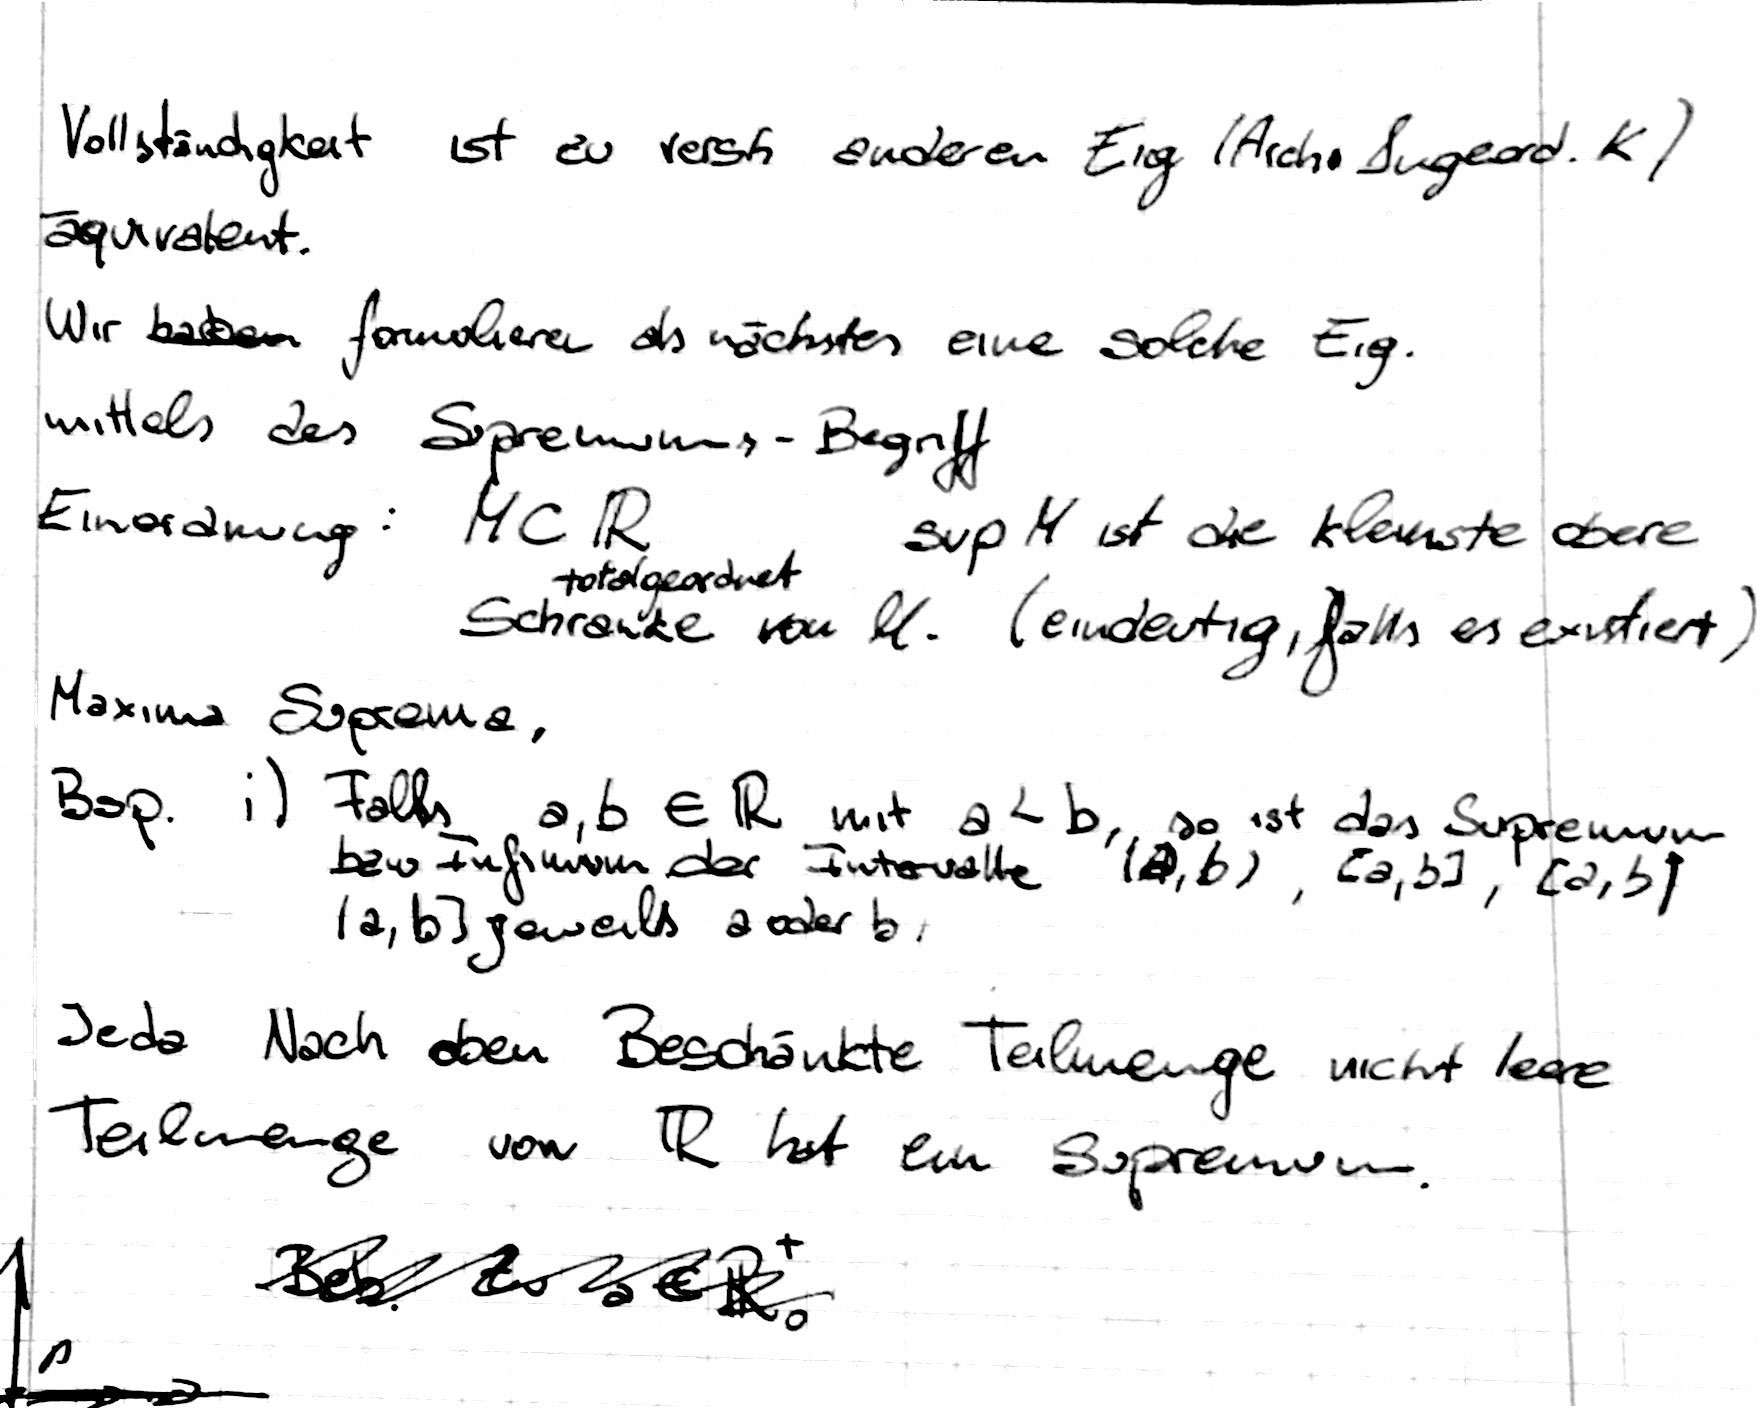 Vollständigkeit ist zu versch anderen Eig (Arch. Angeord. K)
äquivalent.
Wir formulieren als nächstes eine solche Eig.
mittels des Supremums-Begriff
Einordnung: M ⊂ ℝ sup M ist die kleinste obere
totalgeordnet
Schranke von M. (eindeutig, falls es existiert)
Maxima Suprema,
Bsp. i) Falls a,b ∈ ℝ mit a < b, so ist das Supremum
bzw Infimum der Intervalle (a,b), [a,b], [a,b)
(a,b] jeweils a oder b.
Jede Nach oben Beschänkte Teilmenge nicht leere
Teilmenge von ℝ hat ein Supremum.